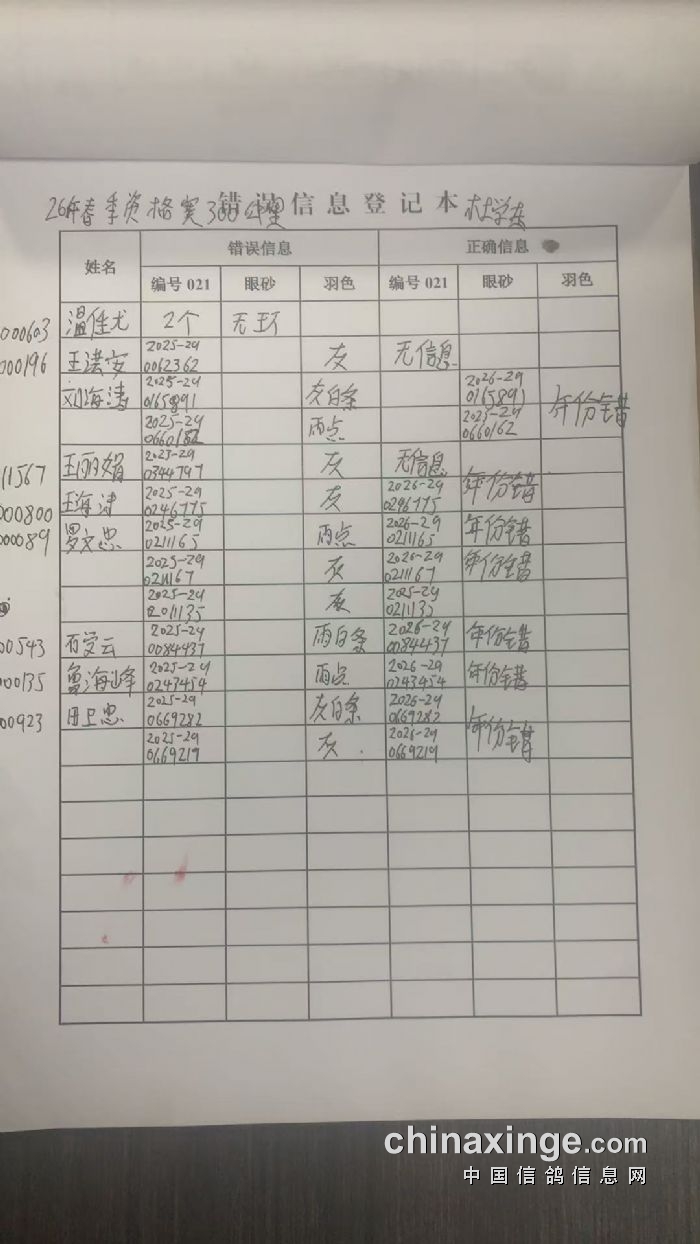 26年春季资格赛300公里 错误信息登记本 杜学东
姓名 错误信息 正确信息
编号 021 眼砂 羽色 编号 021 眼砂 羽色
000603 温佳尤 2个 无环
000196 王洪安 2025-29 0062362 灰 无信息
刘海涛 2025-29 0165891 灰白条 2026-29 0165891
2025-29 0660182 雨点 2025-29 0660162 年份错
11567 王丽娟 2025-29 0344797 灰 无信息
000800 王海涛 2025-29 0246775 灰 2026-29 0246775 年份错
000089 罗文忠 2025-29 0211165 雨点 2026-29 0211165 年份错
2025-29 0211167 灰 2026-29 0211167 年份错
2025-29 2011135 灰 2025-29 0211135
00543 石学云 2025-29 0084437 雨白条 2026-29 0084437 年份错
000135 鲁海峰 2025-29 0243454 雨点 2026-29 0243454 年份错
00923 田卫忠 2025-29 0669282 灰白条 2026-29 0669282
2025-29 0669219 灰 2026-29 0669219 年份错
chinaxinge.com
中国信鸽信息网